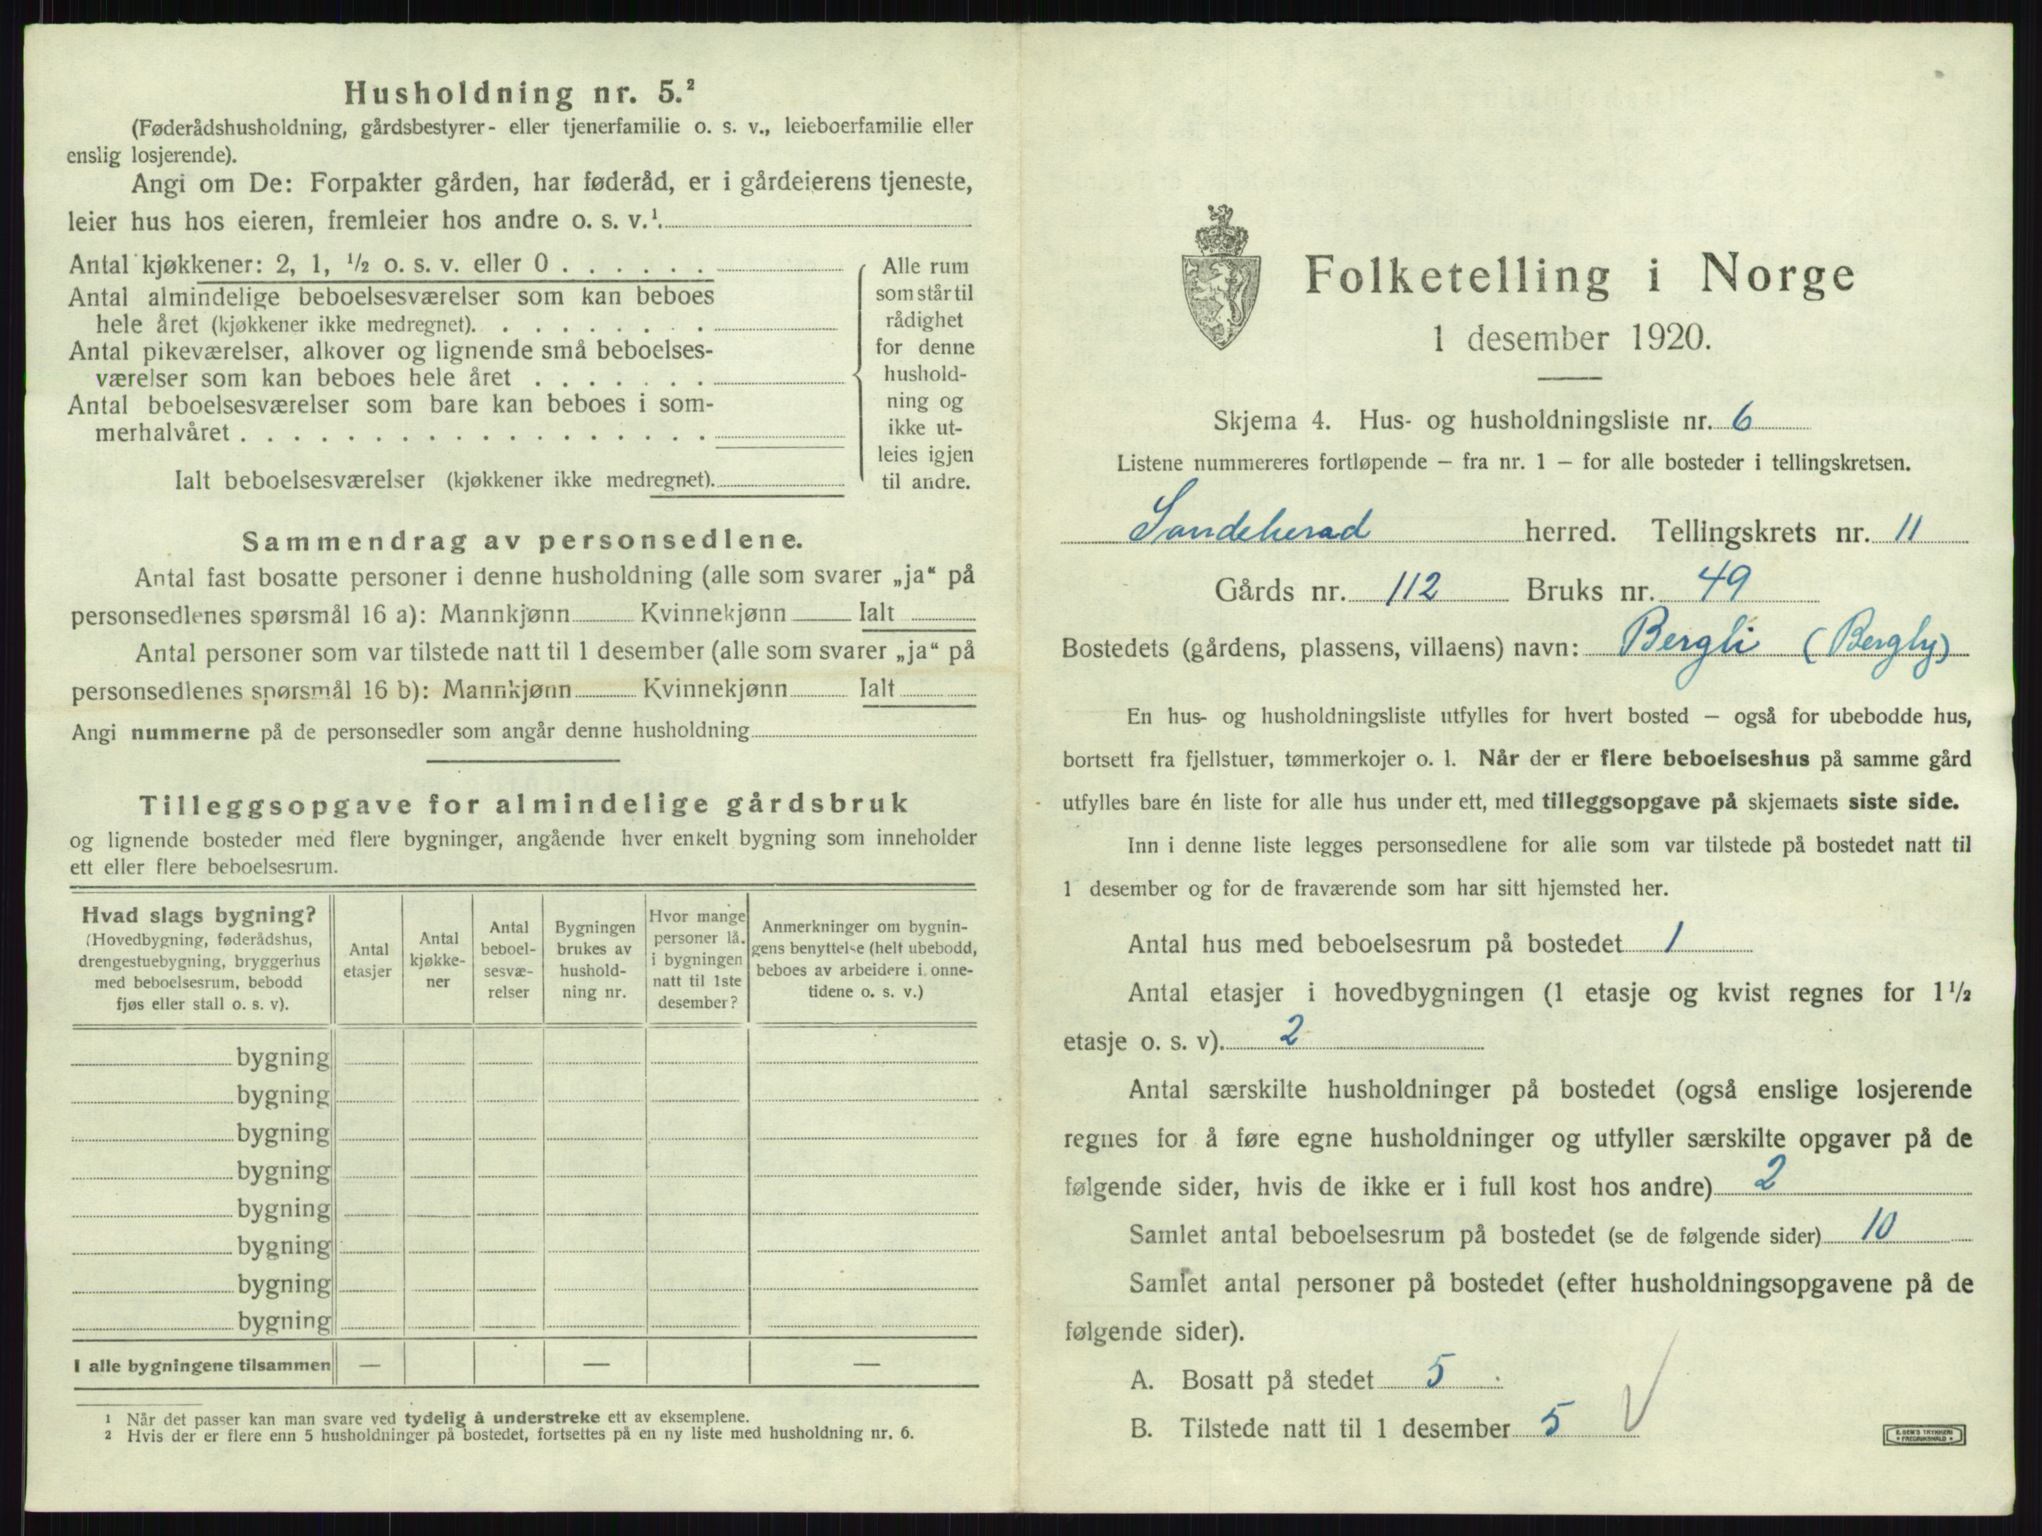 Husholdning nr. 5.²
(Føderådshusholdning, gårdsbestyrer- eller tjenerfamilie o. s. v., leieboerfamilie eller
enslig losjerende).
Angi om De: Forpakter gården, har føderåd, er i gårdeierens tjeneste,
leier hus hos eieren, fremleier hos andre o. s. v.¹.
Antal kjøkkener: 2, 1, ½ o. s. v. eller 0 . . . . . .
Antal almindelige beboelsesværelser som kan beboes
hele året (kjøkkener ikke medregnet). . . . . . . . .
Antal pikeværelser, alkover og lignende små beboelses-
værelser som kan beboes hele året . . . . . . .
Antal beboelsesværelser som bare kan beboes i som-
merhalvåret . . . . . . . . . . . . . . . . . .
Ialt beboelsesværelser (kjøkkener ikke medregnet).
Alle rum
som står til
rådighet
for denne
hushold-
ning og
ikke ut-
leies igjen
til andre.
Sammendrag av personsedlene.
Antal fast bosatte personer i denne husholdning (alle som svarer „ja“ på
personsedlenes spørsmål 16 a): Mannkjønn Kvinnekjønn Ialt
Antal personer som var tilstede natt til 1 desember (alle som svarer „ja“ på
personsedlenes spørsmål 16 b): Mannkjønn Kvinnekjønn Ialt
Angi nummerne på de personsedler som angår denne husholdning
Tilleggsopgave for almindelige gårdsbruk
og lignende bosteder med flere bygninger, angående hver enkelt bygning som inneholder
ett eller flere beboelsesrum.
Hvad slags bygning?
(Hovedbygning, føderådshus,
drengestuebygning, bryggerhus
med beboelsesrum, bebodd
fjøs eller stall o. s. v).
Antal
etasjer
Antal
kjøkke-
ner
Antal
beboel-
sesvæ-
relser
Bygningen
brukes av
hushold-
ning nr.
Hvor mange
personer lå
i bygningen
natt til 1ste
desember?
Anmerkninger om bygnin-
gens benyttelse (helt ubebodd,
beboes av arbeidere i onne-
tidene o. s. v.)
bygning
bygning
bygning
bygning
bygning
bygning
bygning
bygning
I alle bygningene tilsammen — — —
1 Når det passer kan man svare ved tydelig å understreke ett av eksemplene.
2 Hvis der er flere enn 5 husholdninger på bostedet, fortsettes på en ny liste med husholdning nr. 6.
Folketelling i Norge
1 desember 1920.
Skjema 4. Hus- og husholdningsliste nr. 6
Listene nummereres fortløpende – fra nr. 1 – for alle bosteder i tellingskretsen.
Sandeherad herred. Tellingskrets nr. 11
Gårds nr. 112 Bruks nr. 49
Bostedets (gårdens, plassens, villaens) navn: Bergli (Bergly)
En hus- og husholdningsliste utfylles for hvert bosted – også for ubebodde hus,
bortsett fra fjellstuer, tømmerkojer o. l. Når der er flere beboelseshus på samme gård
utfylles bare én liste for alle hus under ett, med tilleggsopgave på skjemaets siste side.
Inn i denne liste legges personsedlene for alle som var tilstede på bostedet natt til
1 desember og for de fraværende som har sitt hjemsted her.
Antal hus med beboelsesrum på bostedet 1
Antal etasjer i hovedbygningen (1 etasje og kvist regnes for 1½
etasje o. s. v). 2
Antal særskilte husholdninger på bostedet (også enslige losjerende
regnes for å føre egne husholdninger og utfyller særskilte opgaver på de
følgende sider, hvis de ikke er i full kost hos andre) 2
Samlet antal beboelsesrum på bostedet (se de følgende sider) 10
Samlet antal personer på bostedet (efter husholdningsopgavene på de
følgende sider).
A. Bosatt på stedet 5
B. Tilstede natt til 1 desember 5
E. SEM'S TRYKKERI
FREDRIKSHALD